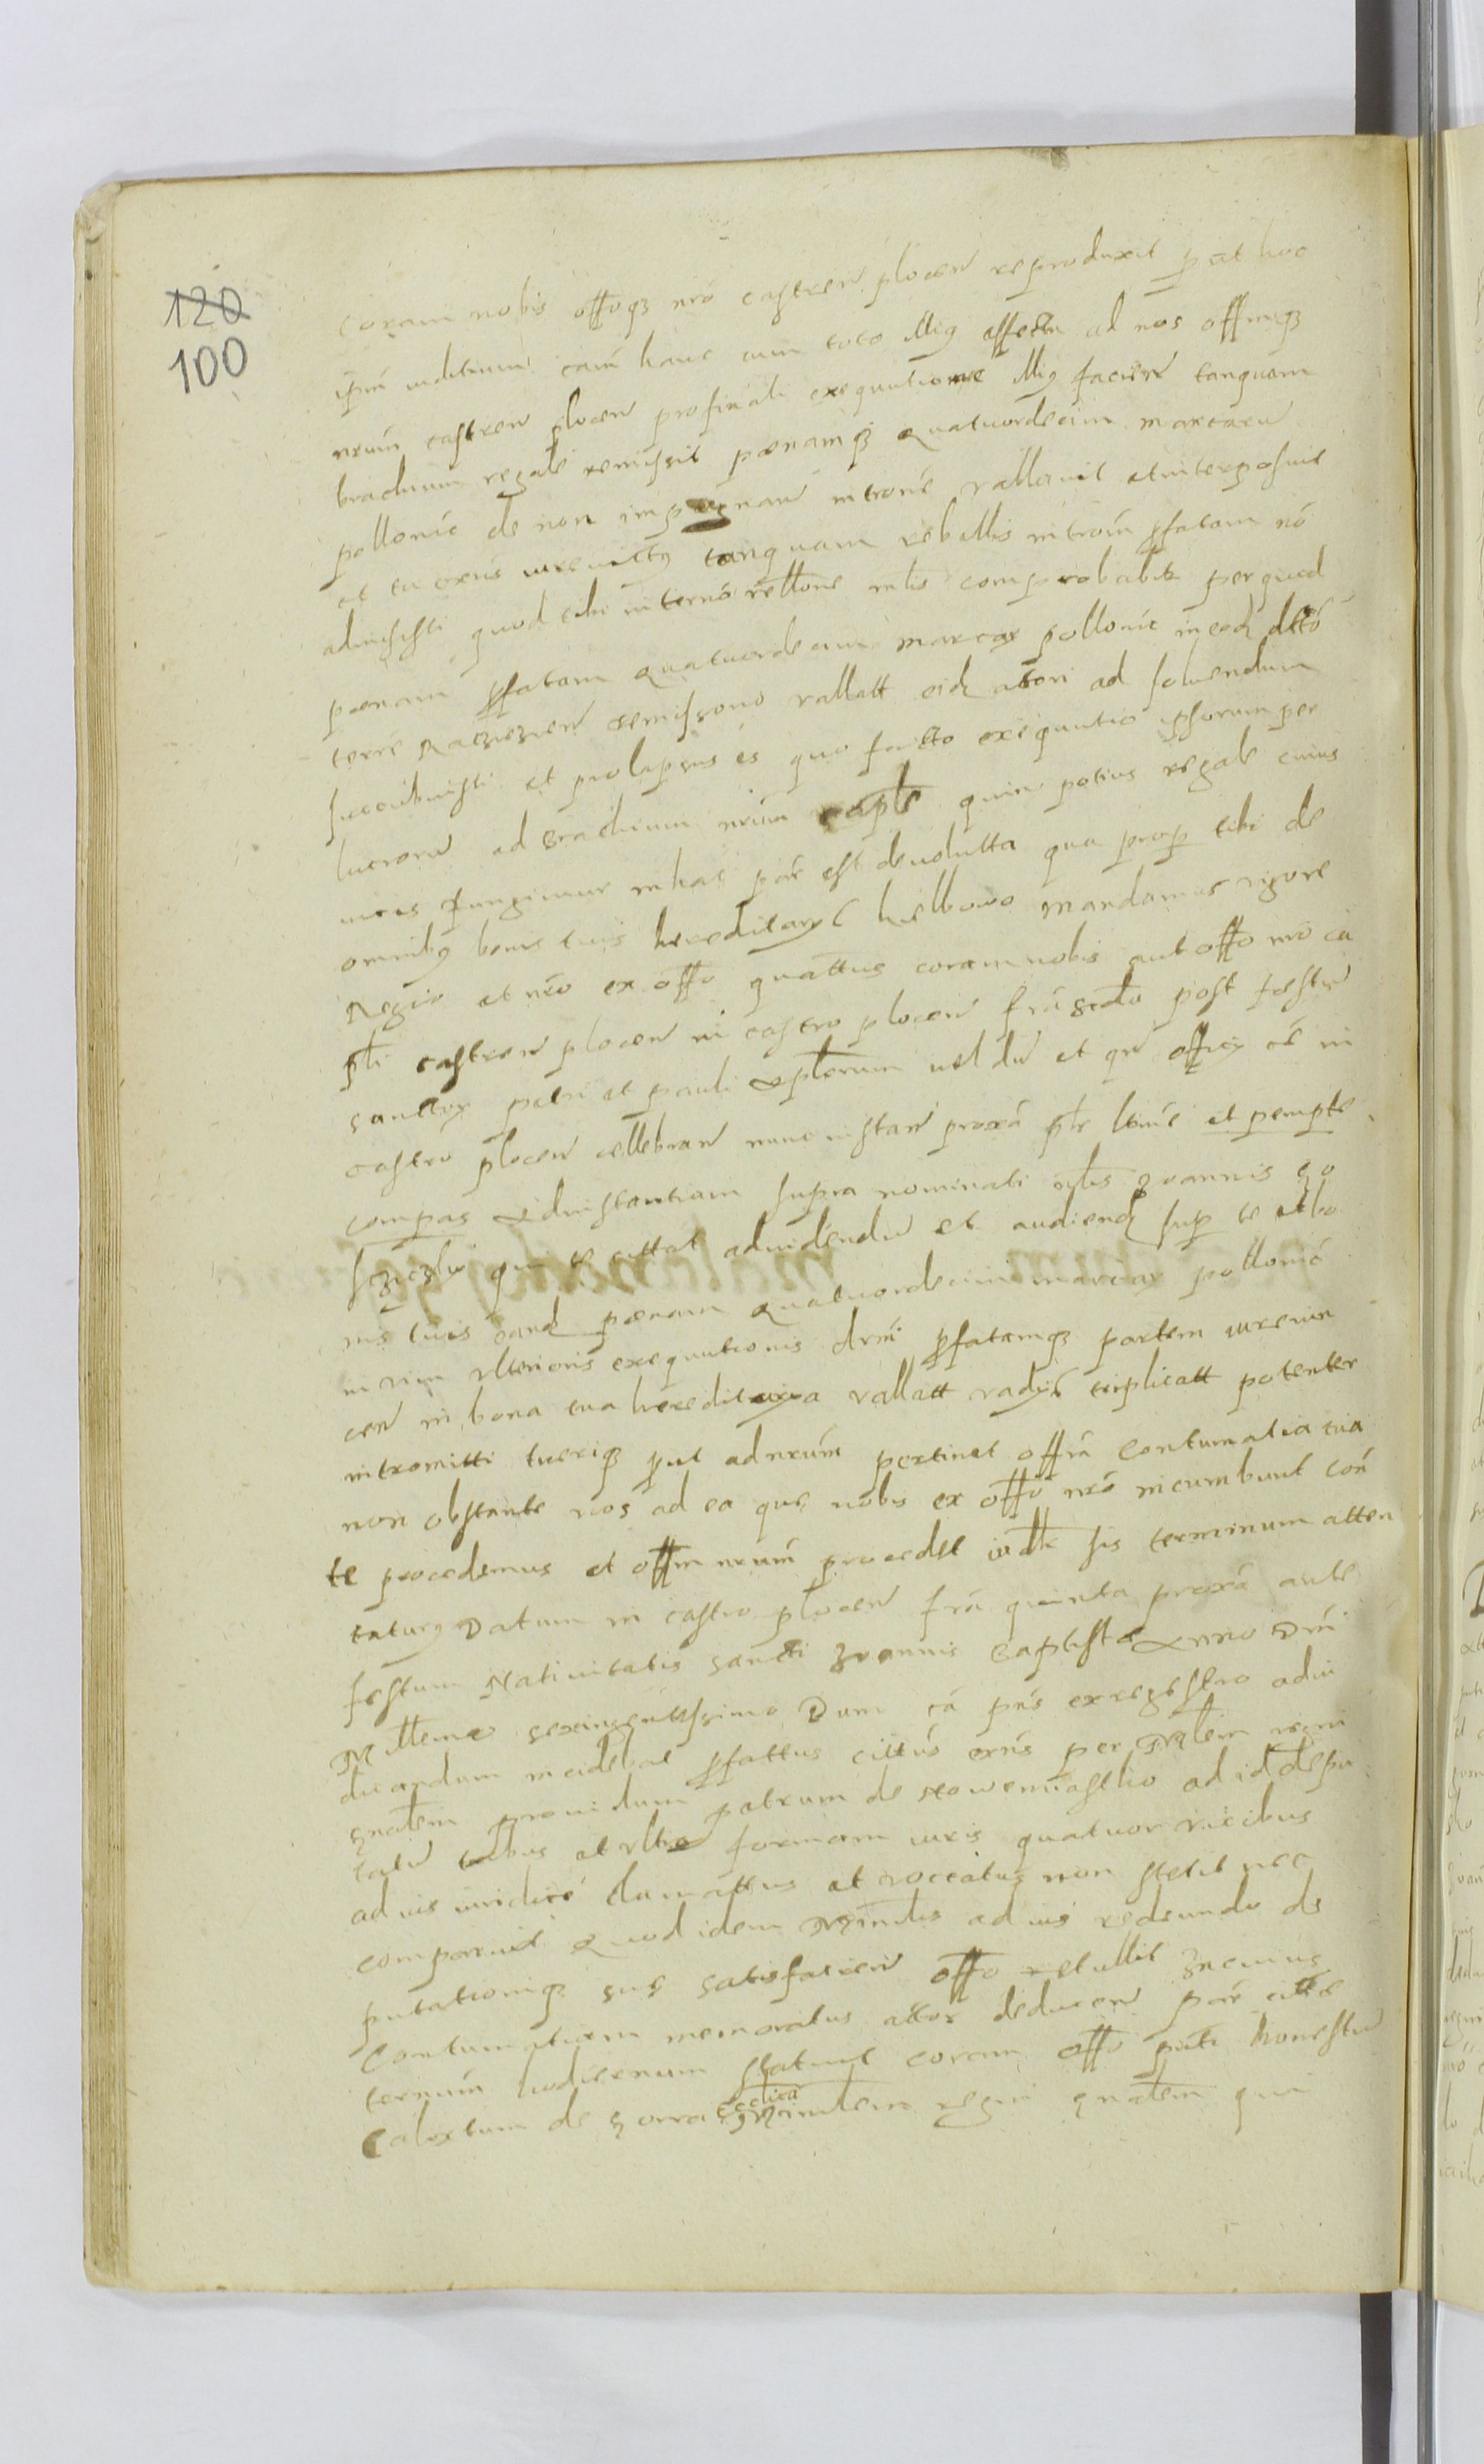 120
100
coram nobis offoq nro castren plocen reproduxit put hoc
ipm iuditium cam hanc cum toto illiq effectu ad nos offmq
nrum castren plocen pro finali exequutione illiq facien tanquam
brachium regale remissit pœnamq quatuordecim marcaru
pollonic de non impugnan introne vallavit et interposuit
et tu exñs iurevictq tanquam rebellis introm pfatam nō
admisisti quod tibi in termō rellone mlis comprobabit per quod
pœnam pfatam quatuordecim marcar pollonic in eod dtto
terre Raczezen remissorio vallatt eid attori ad solvendum
succubuisti et prolapsus es quo facto exequutio ipsorum per
lucroru ad brachium nrum caple quin potius regale cuius
vices fungimur in hac par est devolutta qua prop tibi de
omnibq bonis tuis hereditarys kielbowo mandamus rigore
Regio et nro ex offo quattus coram nobis aut offo nro ca
pli castren plocen in castro plocen fra scdo post festu
sanctor petri et pauli aplorum vel du et qn officy ce in
castro plocen cellebran nunc instan proxa ple ltime et pempte
compas ad instantiam supra nominati nlis Joannis Go
qui te cittat ad videndu et audiend sup te et bo
nis tuis eand pœnam quatuordecim marcar pollonic
in vim ulterioris exequutionis drm pfatamq partem iurevin
cen in bona tua hereditaria vallatt vadys triplicatt potenter
intromitti tueriq put ad nrum pertinet offm contumatia tua
non obstante nos ad ea que nobis ex offo nro incumbunt con
te procedemus et offm nrum procedet iudlr sis terminum atten
taturq Datum in castro plocen fra quinta proxa ante
festum Nativitatis sancti Joannis Baptistæ Anno Dni
Millemo sexingentissimo Dum ca pns ex regestro adiu
dicandum incidebat pfattus cittus exns per Mlem regni
gnalem providum petrum de Nowemiastho ad id depu
tatu tribus et ultra formam iuris quatuor vicibus
ad ius iuridice clamattus et voccatus non stetit nec
comparuit Quod idem Minrlis ad ius redeundo de
putationiq suę satisfacien offo retullit In cuius
contumatiam memoratus attor deducen par citte
termm hodiernum statuit coram offo pnti honestu
Calextum de Gorra ecclica Minrlem regni gnalem qui